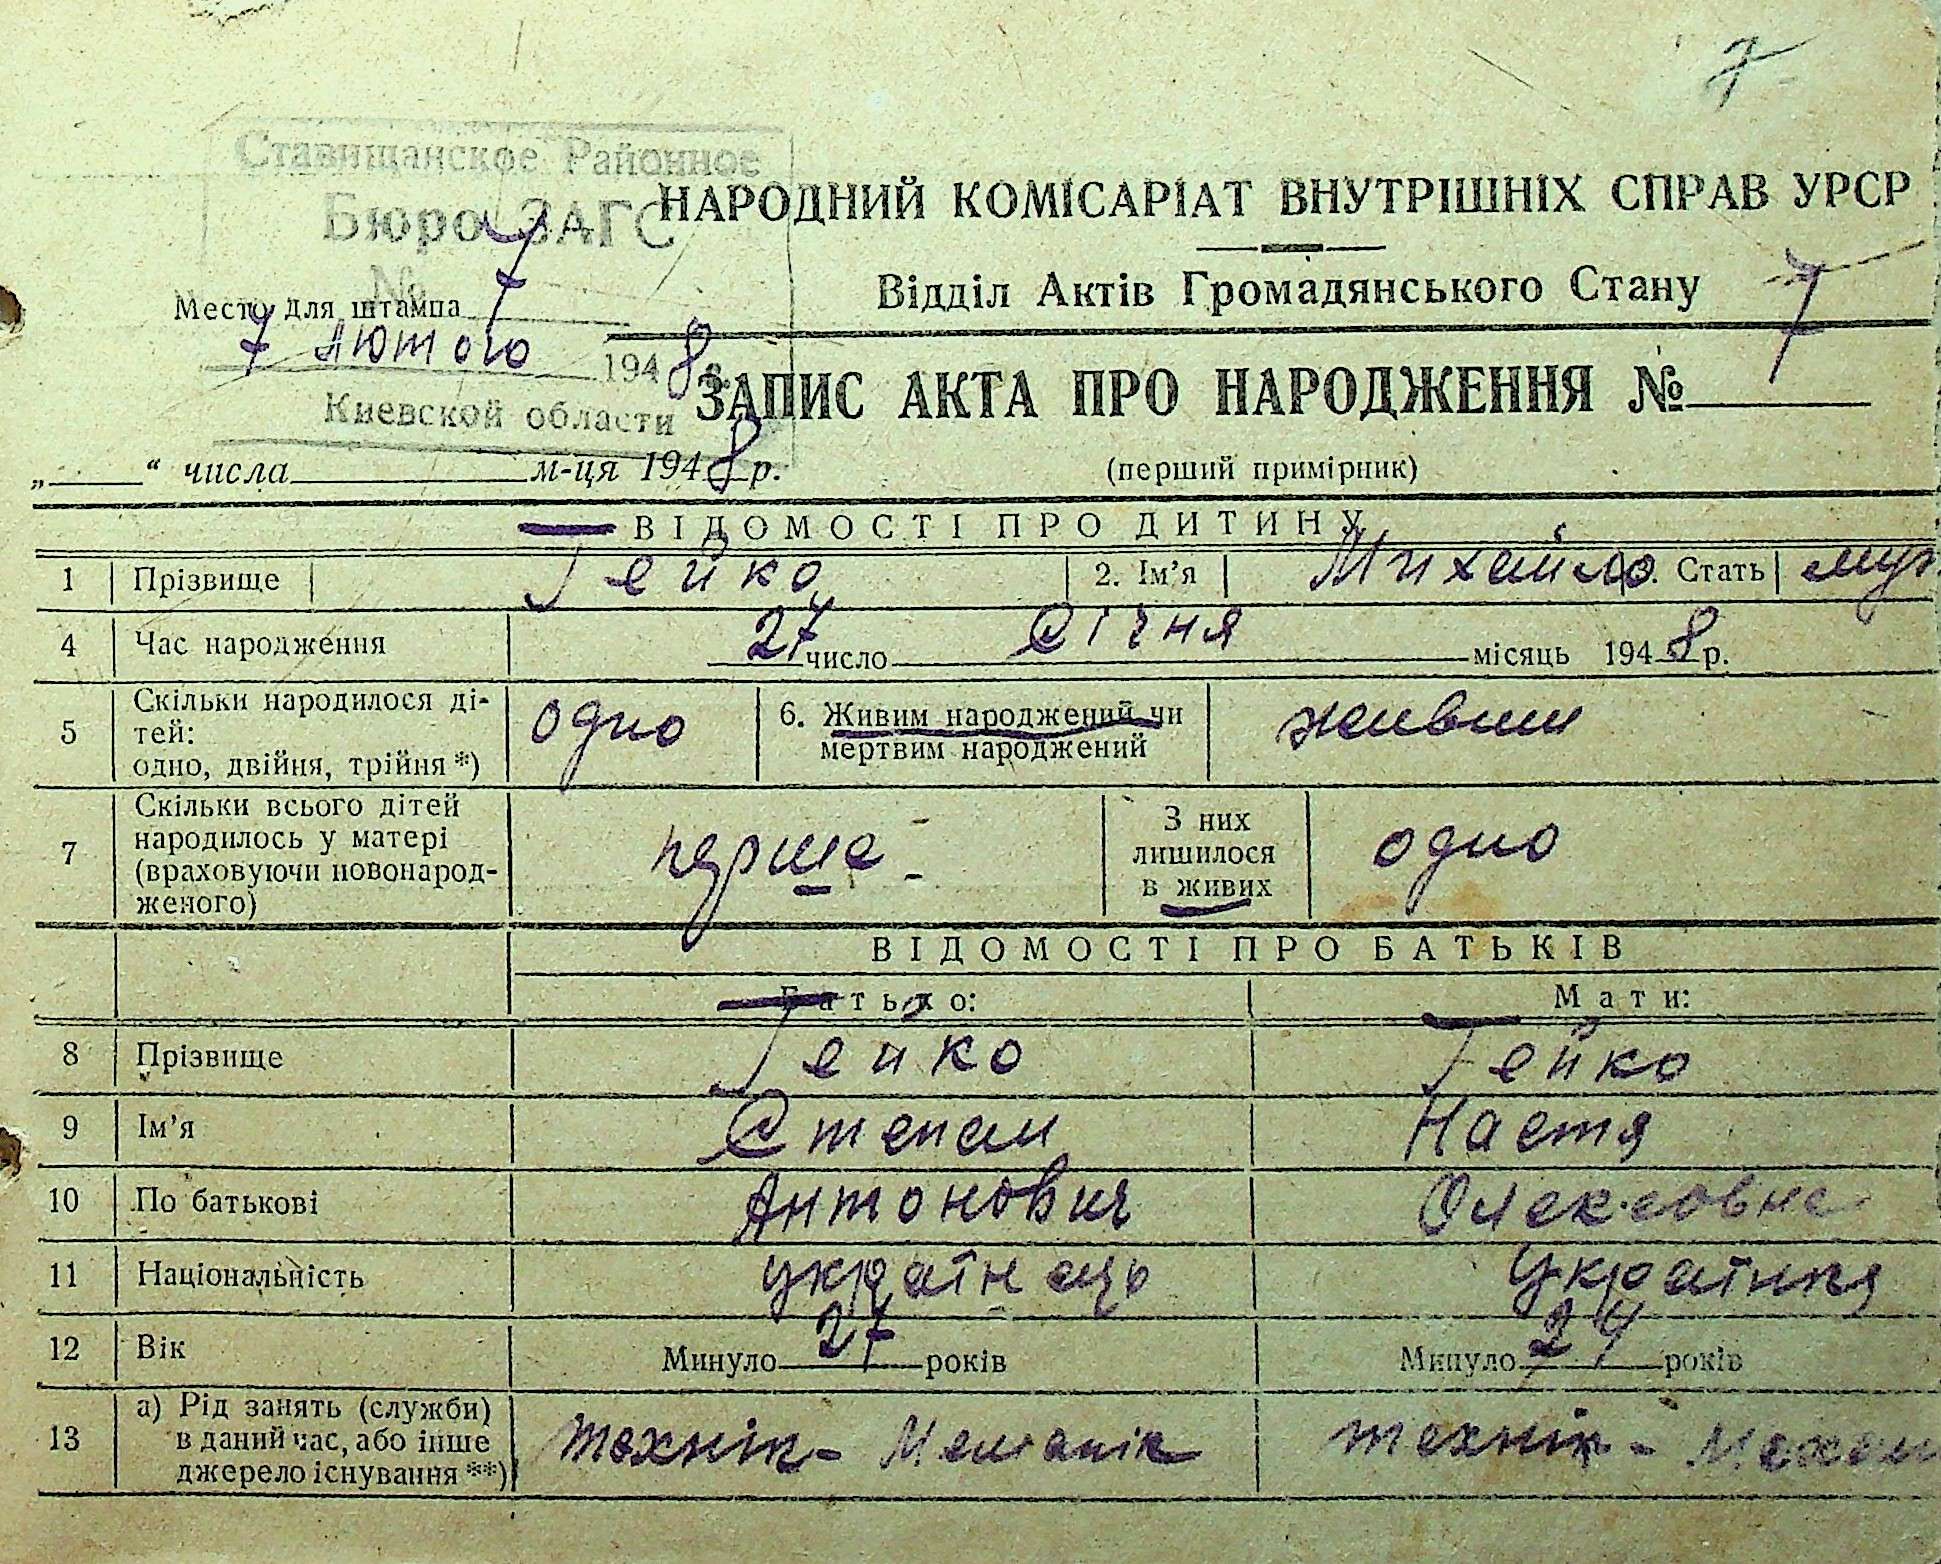 7
Ставищанское Районное
Бюро ЗАГС
№ 7
НАРОДНИЙ КОМІСАРІАТ ВНУТРІШНІХ СПРАВ УРСР
Відділ Актів Громадянського Стану
Место для штампа
7 лютого 1948 г.
Киевской области
ЗАПИС АКТА ПРО НАРОДЖЕННЯ № 7
„ “ числа м-ця 1948 р.
(перший примірник)
ВІДОМОСТІ ПРО ДИТИНУ
1 Прізвище Гейко 2. Ім’я Михайло 3. Стать муж
4 Час народження 27 число Січня місяць 1948 р.
5 Скільки народилося ді-
тей:
одно, двійня, трійня *) одно 6. Живим народжений чи
мертвим народжений живим
7 Скільки всього дітей
народилось у матері
(враховуючи новонарод-
женого) перше З них
лишилося
в живих одно
ВІДОМОСТІ ПРО БАТЬКІВ
Батько: Мати:
8 Прізвище Гейко Гейко
9 Ім’я Степан Настя
10 По батькові Антонович Олексовна
11 Національність українець Українка
12 Вік Минуло 27 років Минуло 24 років
13 а) Рід занять (служби)
в даний час, або інше
джерело існування **) технік - Механік технік - Механ